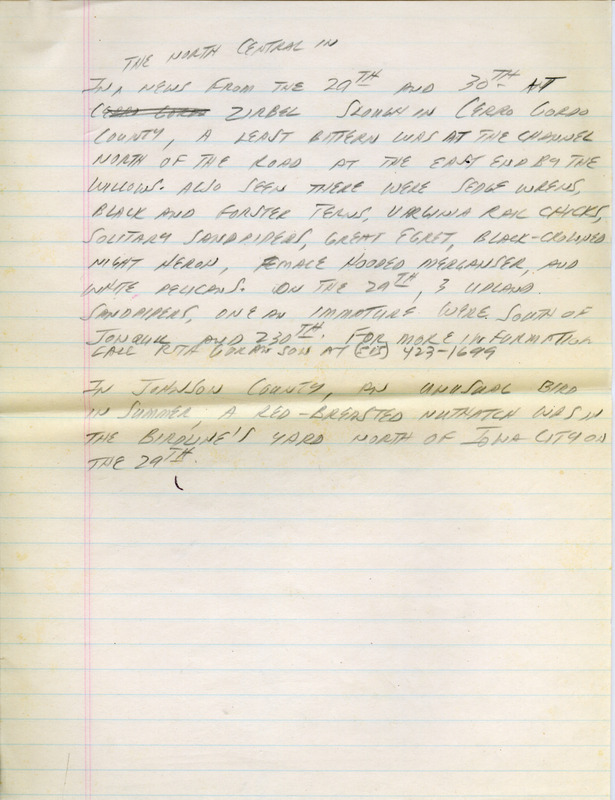 THE NORTH CENTRAL IN
IN A NEWS FROM THE 29TH AND 30TH AT
CERRO GORDO ZIRBEL SLOUGH IN CERRO GORDO
COUNTY, A LEAST BITTERN WAS AT THE CHANNEL
NORTH OF THE ROAD AT THE EAST END BY THE
WILLOWS. ALSO SEEN THERE WERE SEDGE WRENS,
BLACK AND FORSTER TERNS, VIRGINIA RAIL CHICKS,
SOLITARY SANDPIPERS, GREAT EGRET, BLACK-CROWNED
NIGHT HERON, FEMALE HOODED MERGANSER, AND
WHITE PELICANS. ON THE 29TH, 3 UPLAND
SANDPIPERS, ONE AN IMMATURE WERE SOUTH OF
AND 230TH. FOR MORE INFORMATION
CALL RITA GORANSON AT (515) 423-1699
IN JOHNSON COUNTY, AN UNUSUAL BIRD
IN SUMMER, A RED-BREASTED NUTHATCH WAS IN
THE BIRDLINE'S YARD NORTH OF IOWA CITY ON
THE 29TH.